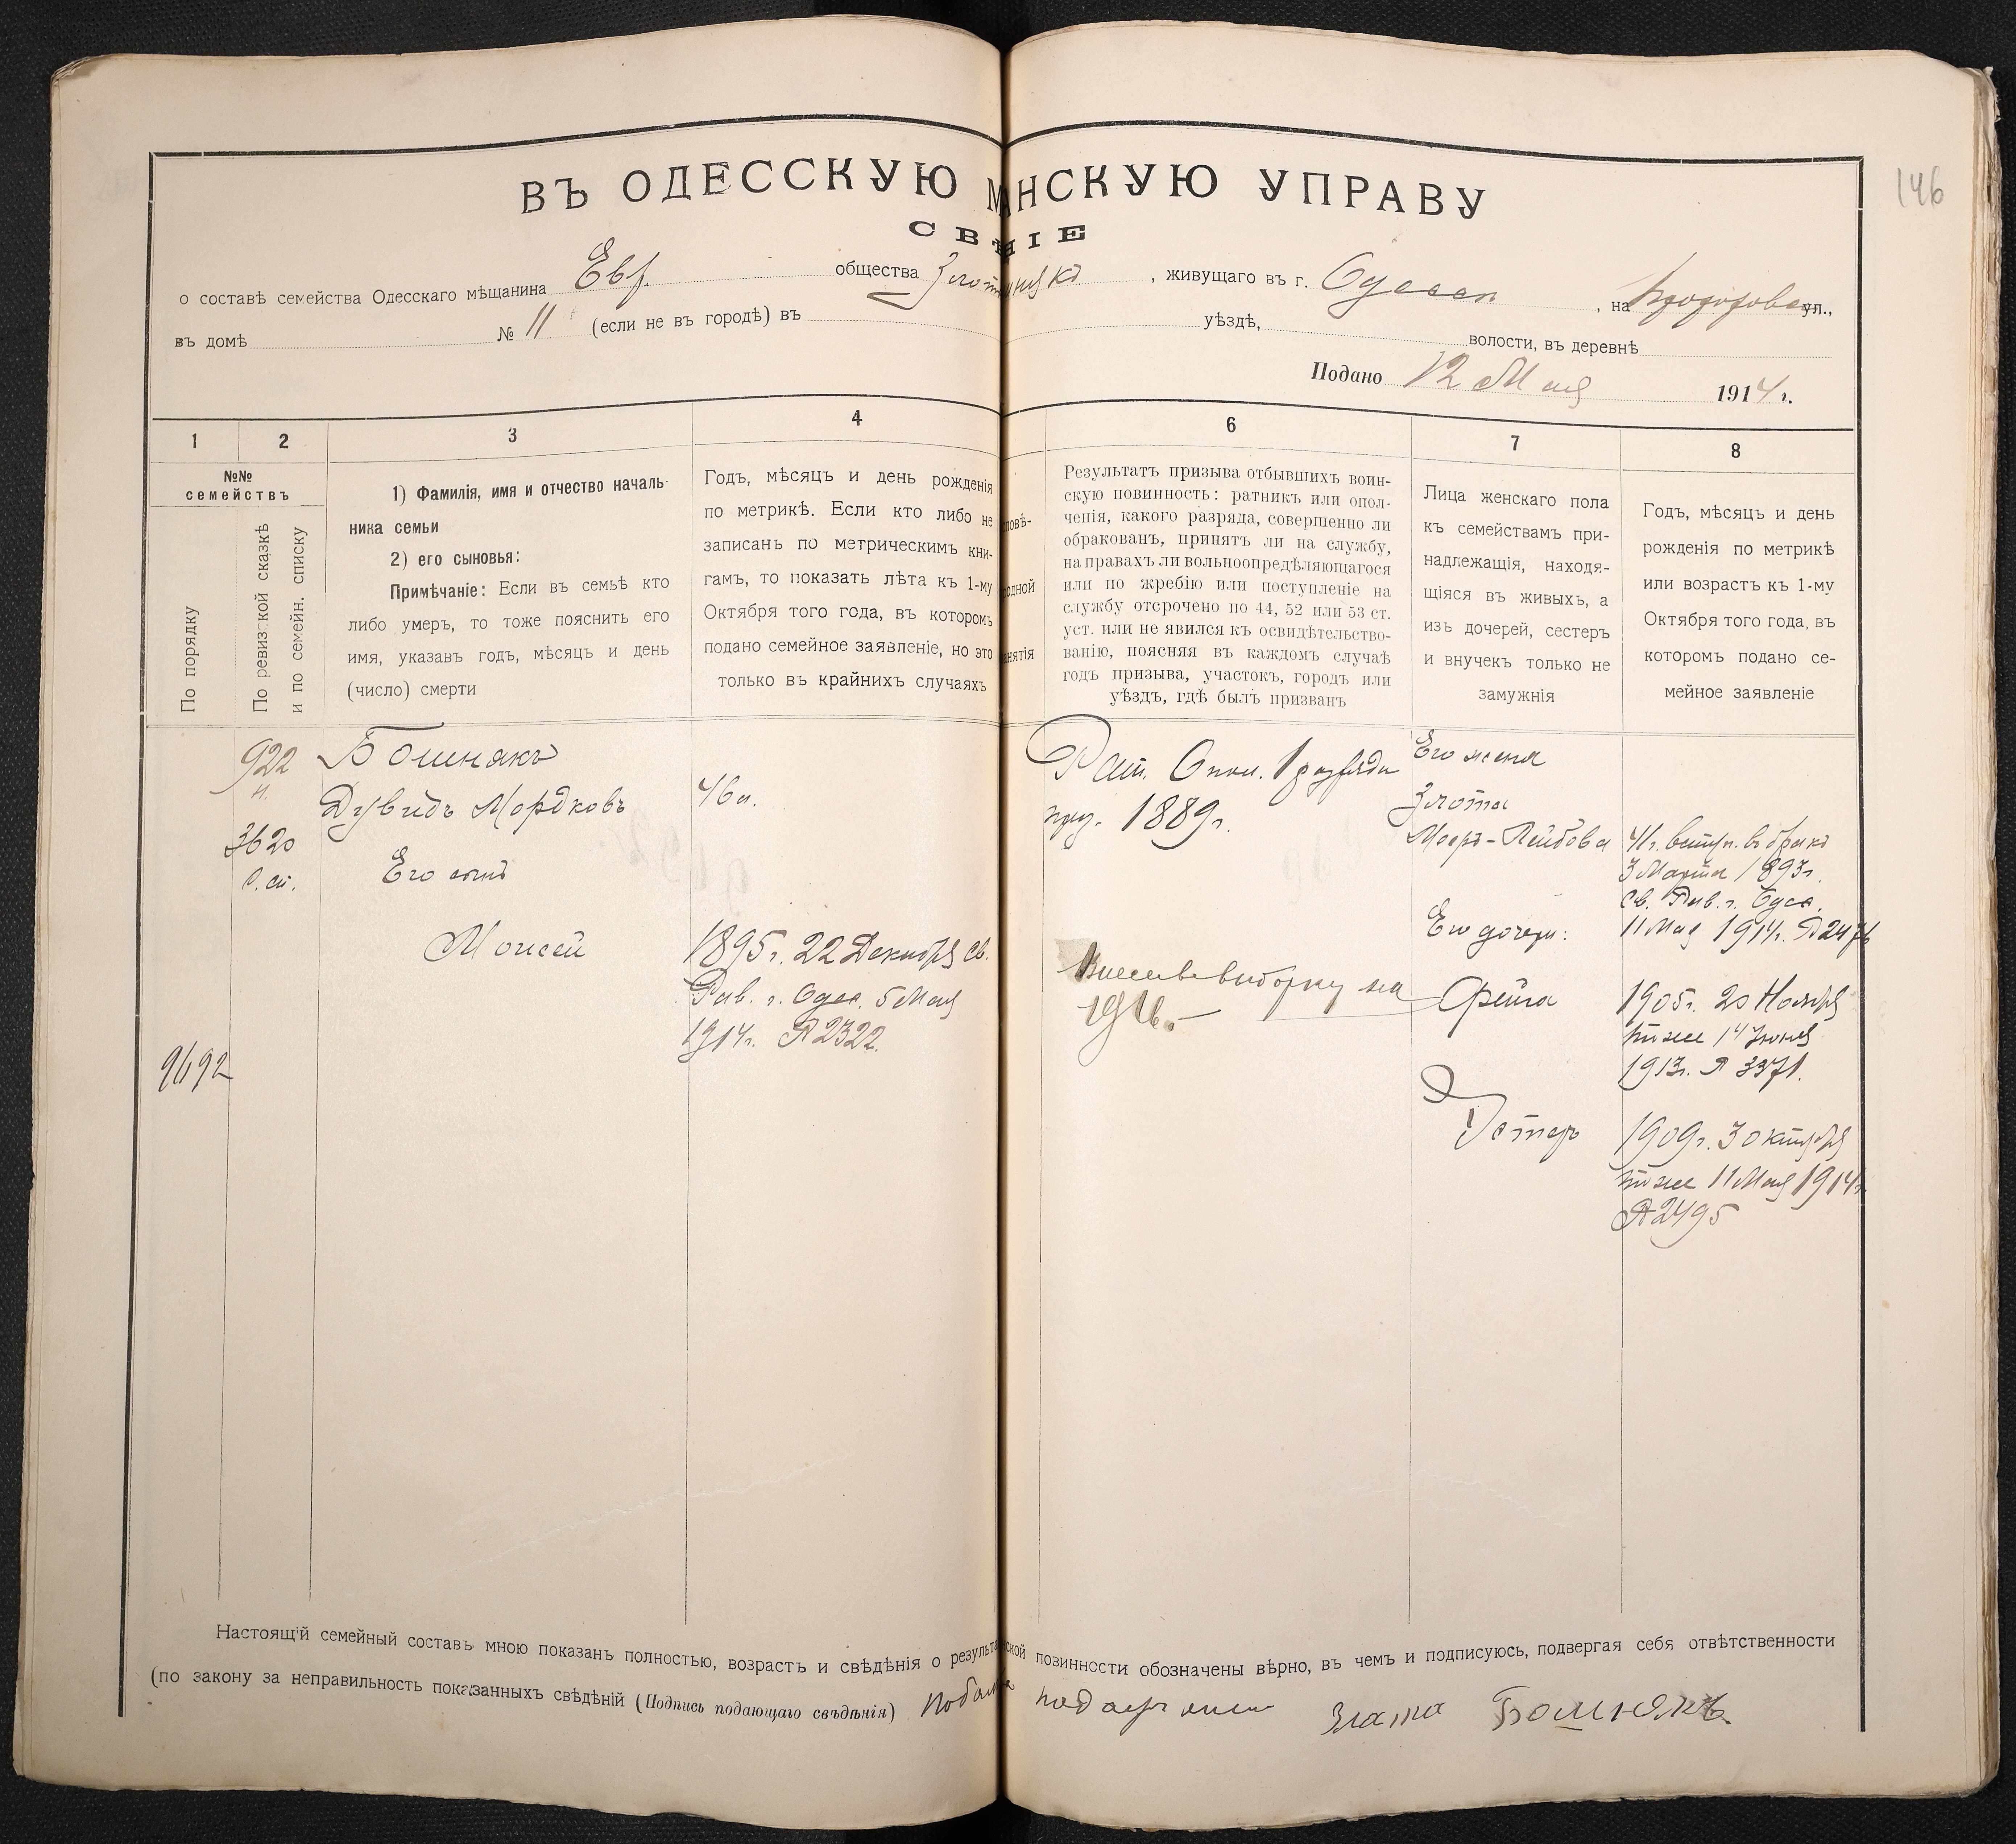 146
ВЪ ОДЕССКУЮ МѢНСКУЮ УПРАВУ
СВѢНІЕ
о составѣ семейства Одесскаго мѣщанина Евр. общества, живущаго въ г. Одессѣ, на ул.,
въ домѣ № 11 (если не въ городѣ) въ уѣздѣ, волости, въ деревнѣ
Подано 12 Мая 1914 г.
1 2 3 4 6 7 8
№№
семействъ
По порядку
По ревизской сказкѣ
и по семейн. списку
1) Фамилія, имя и отчество началь-
ника семьи
2) его сыновья:
Примѣчаніе: Если въ семьѣ кто
либо умеръ, то тоже пояснить его
имя, указавъ годъ, мѣсяцъ и день
(число) смерти
Годъ, мѣсяцъ и день рожденія
по метрикѣ. Если кто либо не
записанъ по метрическимъ кни-
гамъ, то показать лѣта къ 1-му
Октября того года, въ которомъ
подано семейное заявленіе, но это
только въ крайнихъ случаяхъ
повѣ-
одной
анятія
Результатъ призыва отбывшихъ воин-
скую повинность: ратникъ или опол-
ченія, какого разряда, совершенно ли
обракованъ, принятъ ли на службу,
на правахъ ли вольноопредѣляющагося
или по жребію или поступленіе на
службу отсрочено по 44, 52 или 53 ст.
уст. или не явился къ освидѣтельство-
ванію, поясняя въ каждомъ случаѣ
годъ призыва, участокъ, городъ или
уѣздъ, гдѣ былъ призванъ
Лица женскаго пола
къ семействамъ при-
надлежащія, находя-
щіяся въ живыхъ, а
изъ дочерей, сестеръ
и внучекъ только не
замужнія
Годъ, мѣсяцъ и день
рожденія по метрикѣ
или возрастъ къ 1-му
Октября того года, въ
которомъ подано се-
мейное заявленіе
922
н.
3620
Р. ск.
9692
Бошнякъ
Дувидъ Мордковъ
Его сынъ
Моисей
46 л.
1895 г. 22 Декабря св.
Рав. г. Одес. 5 Мая
1914 г. № 2322.
Рат. Опол. 1 разряда
приз. 1889 г.
на
1916.
Его жена
Злота
Меер-Лейбова
Его дочери:
Фейга
Эстеръ
41 г. вступ. въ бракъ
3 Марта 1893 г.
св. Рав. г. Одес.
11 Мая 1914 г. № 2476
1905 г. 20 Ноября
тоже 14 Іюня
1913 г. № 3371.
1909 г. 3 октября
тоже 11 Мая 1914 г.
№ 2495
Настоящій семейный составъ мною показанъ полностью, возрастъ и свѣдѣнія о результа нской повинности обозначены вѣрно, въ чемъ и подписуюсь, подвергая себя отвѣтственности
(по закону за неправильность показанныхъ свѣдѣній (Подпись подающаго свѣдѣнія) Злата Бошнякъ